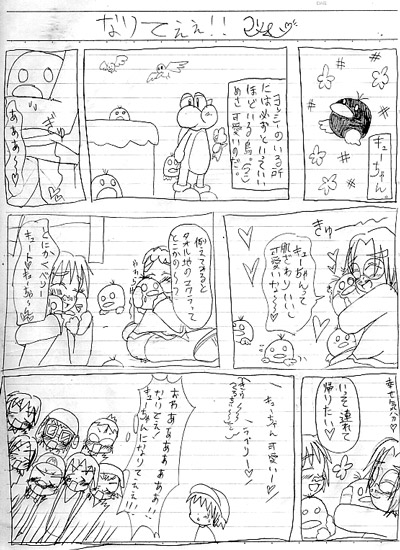 なりてぇぇ!!
キューちゃん
ヨッシーのいる所
には必ずといっていい
ほどいる鳥。(?)
めさ可愛いのだ。
ああああ〜
きゅ
キューちゃんって
肌ざわりいいし
可愛いな〜
例えてみると
タオル地のマフラーって
とにかくベベリー
キュートなキューちゃん
幸せ気分
いっそ連れて
帰りたい
キューちゃん可愛いー
ラベリー
おわぁぁぁぁぁぁ!!
なりてえ!
キューちゃんになりてぇぇ!!